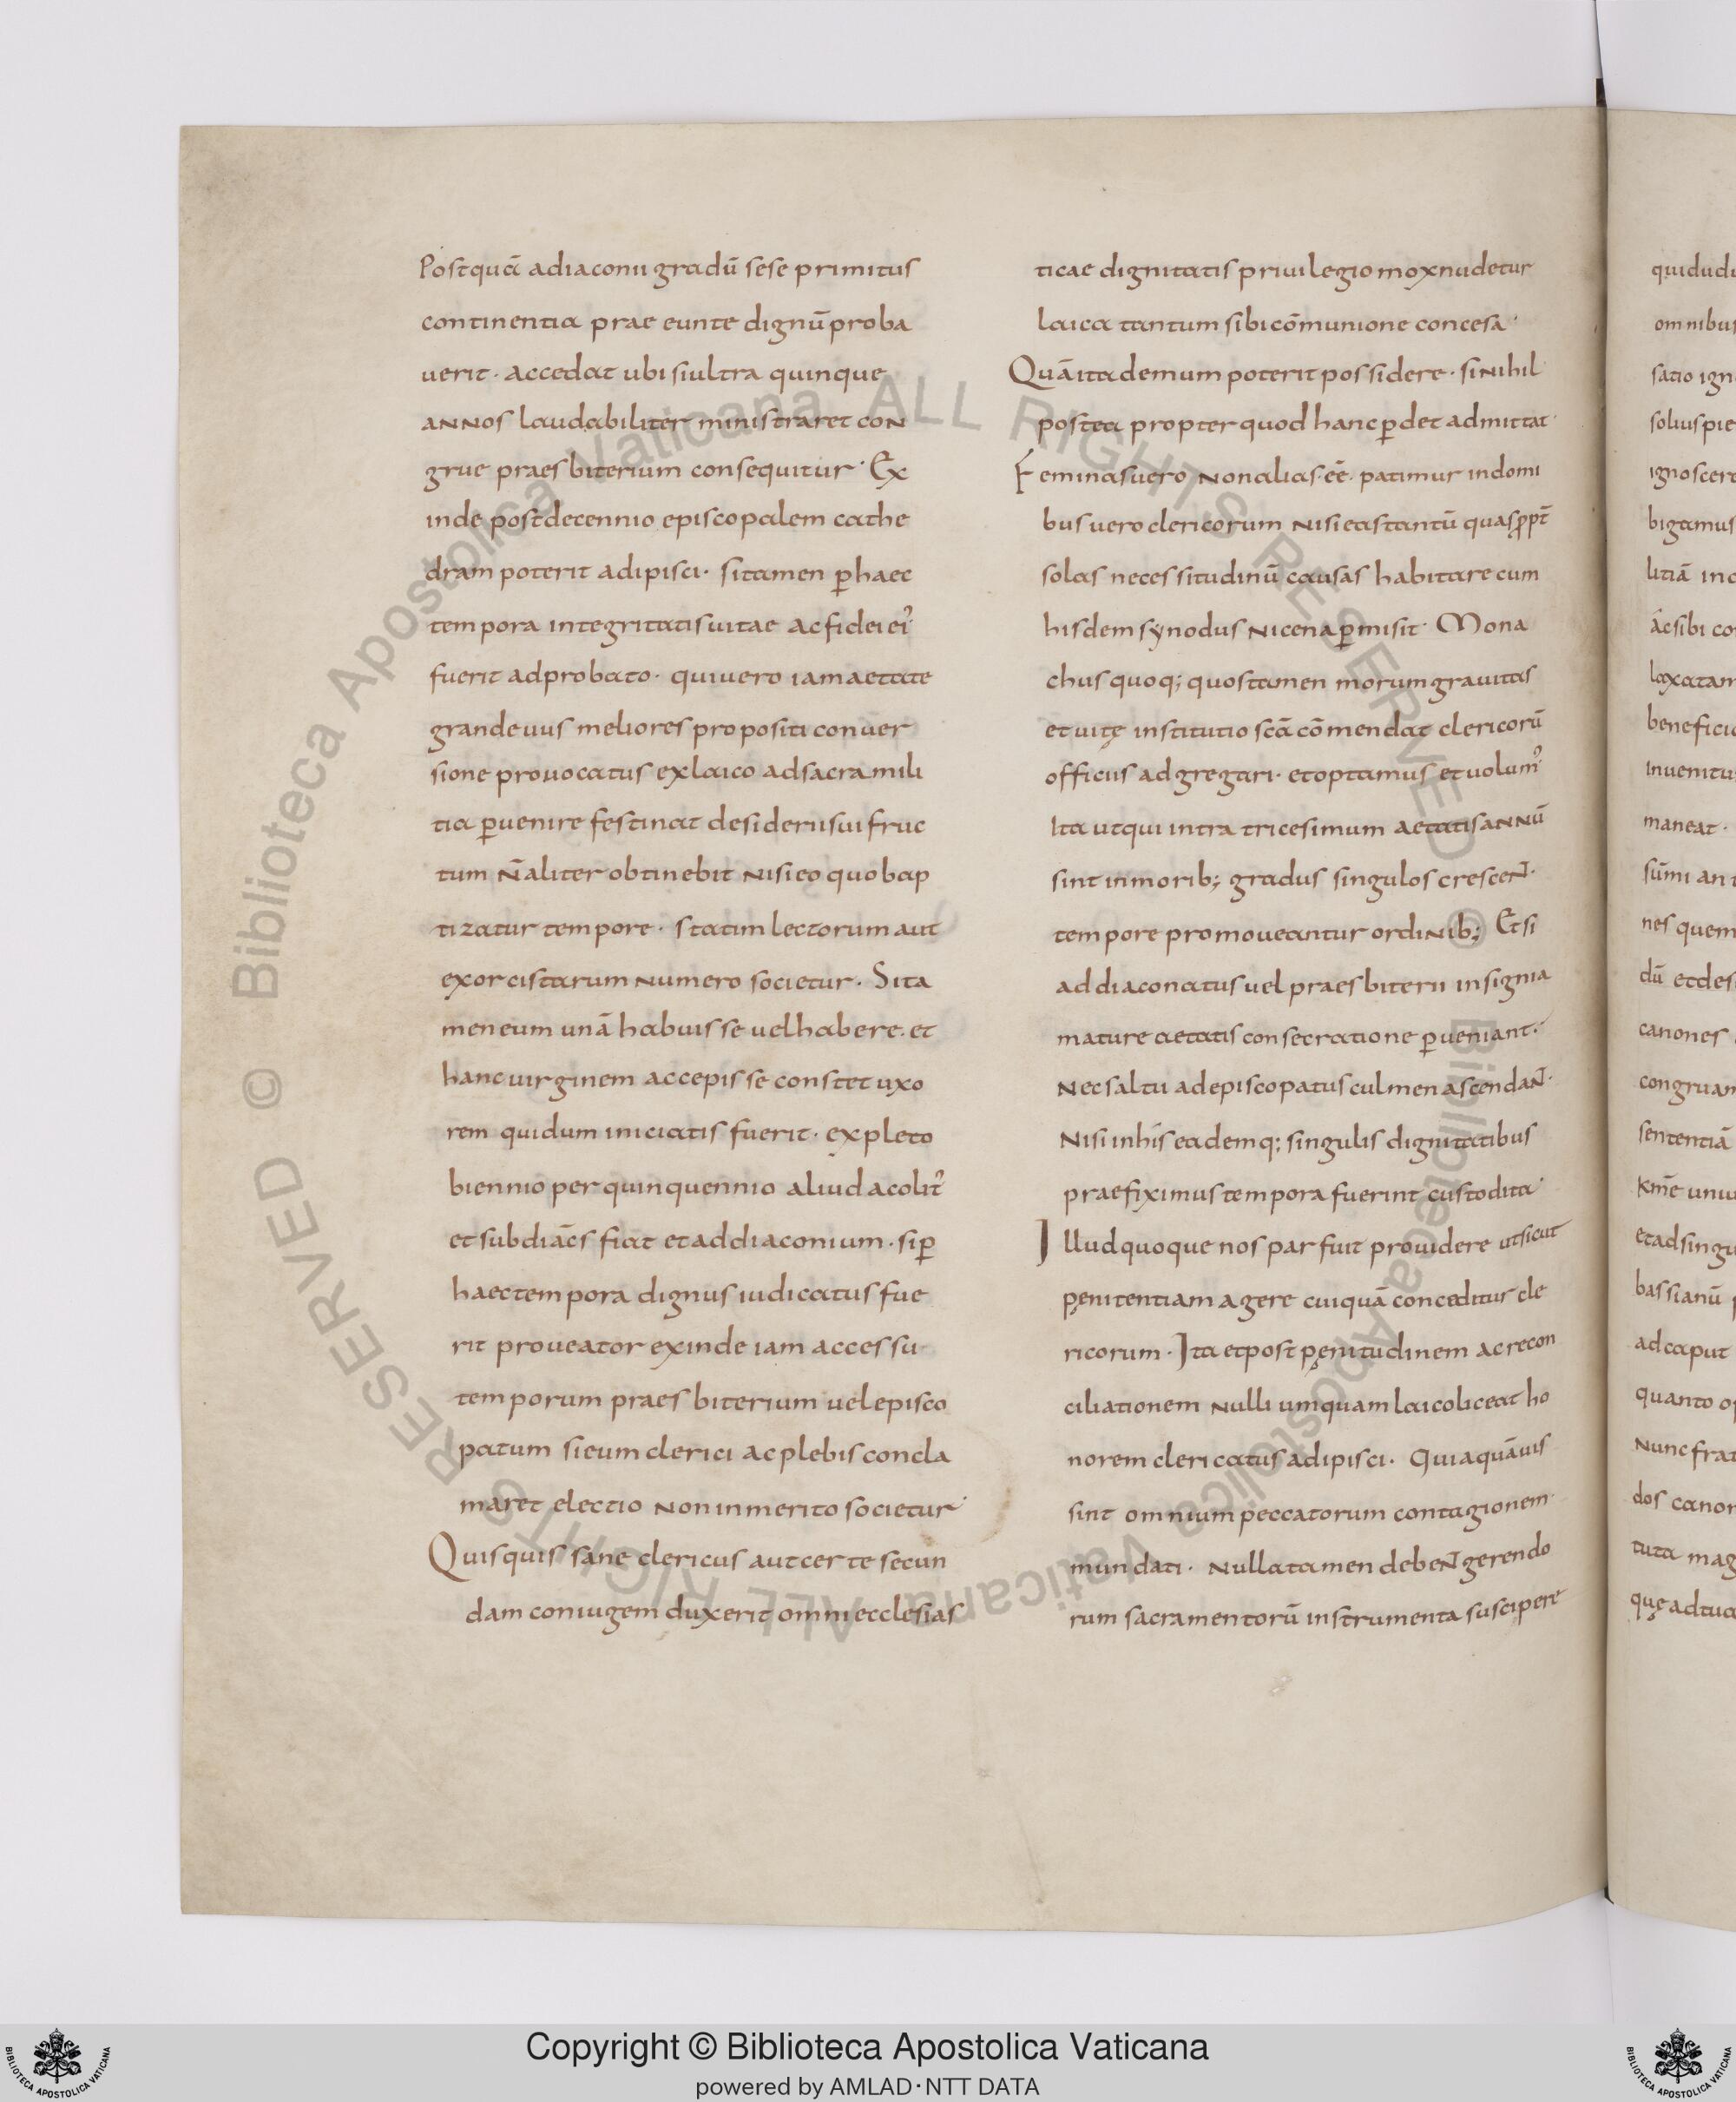 Postquā adiaconii gradū sese primitus
continentia prae eunte dignū proba
uerit · accedat ubi si ultra quinque
annos laudabiliter ministraret con
grue praesbiterium consequitur · Ex
inde post decennio episcopalem cathe
dram poterit adipisci · si tamen p̄ haec
tempora integritatis uitae ac fidei ei᾽
fuerit adprobato · qui uero iam aetate
grandeuus meliores propositi conuer
sione prouocatus ex laico ad sacra mili
tia p̄uenire festinat desiderii sui fruc
tum n̄ aliter obtinebit nisi eo quo bap
tizatur tempore · statim lectorum aut
exorcistarum numero societur · Si ta
men eum unā habuisse uel habere · et
hanc uirginem accepisse constet uxo
rem qui dum iniciatis fuerit · expleto
biennio per quinquennio aliud acolit᾽
et subdiācs fiat et ad diaconium · si p̄
haec tempora dignus iudicatus fue
rit proueator exinde iam accessu
temporum praesbiterium uel episco
patum si eum clerici ac plebis concla
maret electio non inmerito societur ·
Quisquis sane clericus aut certe secun
dam coniugem duxerit omni ecclesias
ticae dignitatis priuilegio mox nudetur
laica tantum sibi cōmunione concesa ·
Quā ita demum poterit possidere · si nihil
postea propter quod hanc p̄det admittat ·
Feminas uero non alias · eē · patimur in domi
bus uero clericorum nisi eas tantū quas p̄pt̄
solas necessitudinū causas habitare cum
hisdem synodus nicena p̄misit · Mona
chus quoq; quos tamen morum grauitas
et uitę institutio scā cōmendat clericorū
officiis adgregari · et optamus et uolum᾽
Ita ut qui intra tricesimum aetatis annū
sint in morib; gradus singulos crescen̄ ·
tempore promoueantur ordinib; Et si
ad diaconatus uel praesbiterii insignia
mature aetatis consecratione p̄ueniant ·
Nec saltu ad episcopatus culmen ascendan̄ ·
Nisi in his eademq; singulis dignitatibus
praefiximus tempora fuerint custodita ·
Illud quoque nos par fuit prouidere ut sicut
pęnitentiam agere cuiquā conceditur cle
ricorum · Ita et post pęnitudinem ac recon
ciliationem nulli umquam laico liceat ho
norem clericatus adipisci · Quia quāuis
sint omnium peccatorum contagionem ·
mundati · Nulla tamen deben̄ gerendo
rum sacramentorū instrumenta suscipere
© Biblioteca Apostolica Vaticana ALL RIGHTS RESERVED © Biblioteca Apostolica Vaticana ALL RIGHTS RESERVED
Copyright © Biblioteca Apostolica Vaticana
powered by AMLAD·NTT DATA
BIBLIOTECA APOSTOLICA VATICANA
BIBLIOTECA APOSTOLICA VATICANA